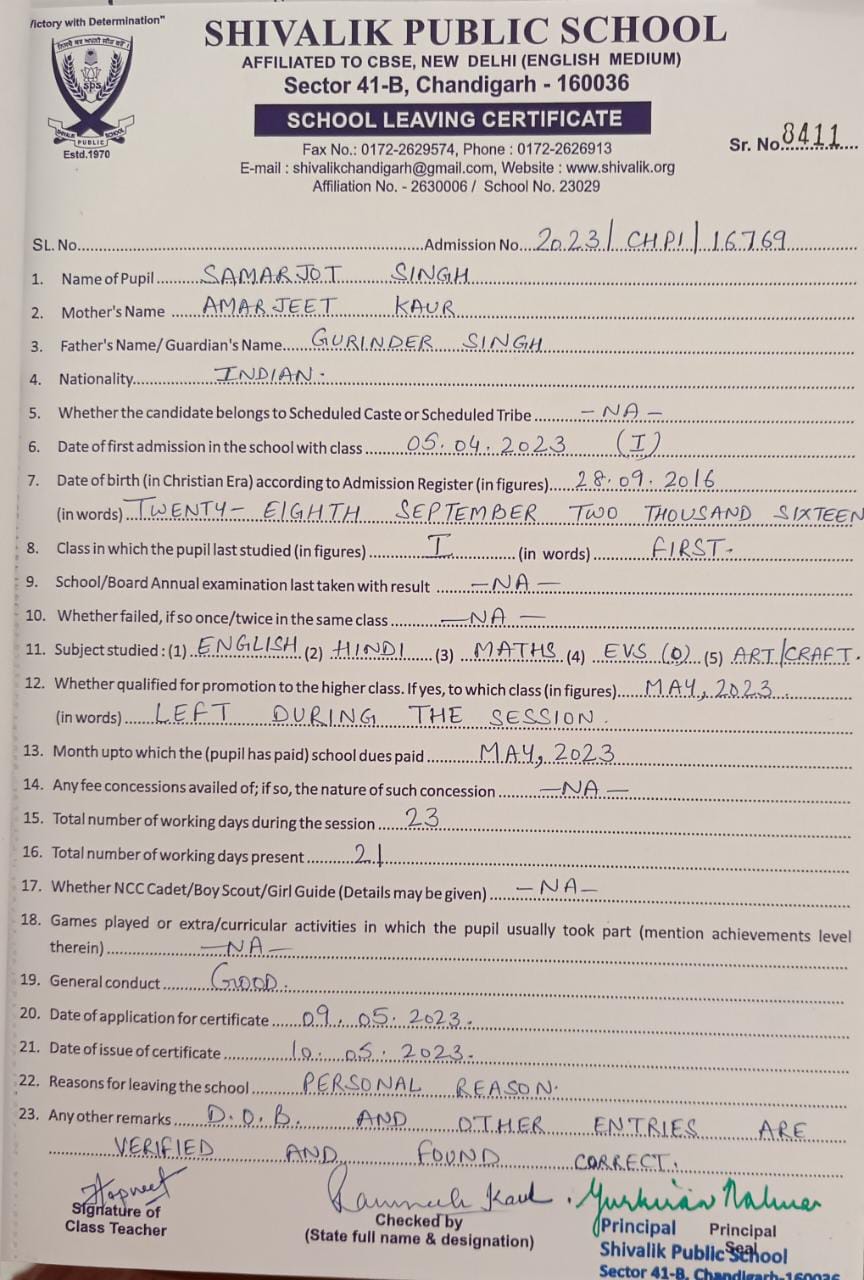 Victory with Determination"
SHIVALIK PUBLIC SCHOOL
AFFILIATED TO CBSE, NEW DELHI (ENGLISH MEDIUM)
Sector 41-B, Chandigarh - 160036
SCHOOL LEAVING CERTIFICATE
SPS
SHIVALIK PUBLIC SCHOOL
Estd.1970
Fax No.: 0172-2629574, Phone : 0172-2626913
Sr. No. 8411
E-mail : shivalikchandigarh@gmail.com, Website : www.shivalik.org
Affiliation No. - 2630006 / School No. 23029
SL. No. Admission No. 2023/CHPI/16769
1. Name of Pupil SAMARJOT SINGH
2. Mother's Name AMARJEET KAUR
3. Father's Name/ Guardian's Name GURINDER SINGH
4. Nationality INDIAN.
5. Whether the candidate belongs to Scheduled Caste or Scheduled Tribe -NA-
6. Date of first admission in the school with class 05.04.2023 (I)
7. Date of birth (in Christian Era) according to Admission Register (in figures) 28.09.2016
(in words) TWENTY-EIGHTH SEPTEMBER TWO THOUSAND SIXTEEN
8. Class in which the pupil last studied (in figures) I (in words) FIRST.
9. School/Board Annual examination last taken with result -NA-
10. Whether failed, if so once/twice in the same class -NA-
11. Subject studied : (1) ENGLISH (2) HINDI (3) MATHS (4) EVS (O) (5) ART/CRAFT.
12. Whether qualified for promotion to the higher class. If yes, to which class (in figures) MAY, 2023
(in words) LEFT DURING THE SESSION.
13. Month upto which the (pupil has paid) school dues paid MAY, 2023
14. Any fee concessions availed of; if so, the nature of such concession -NA-
15. Total number of working days during the session 23
16. Total number of working days present 21
17. Whether NCC Cadet/Boy Scout/Girl Guide (Details may be given) -NA-
18. Games played or extra/curricular activities in which the pupil usually took part (mention achievements level
therein) -NA-
19. General conduct GOOD.
20. Date of application for certificate 09.05.2023.
21. Date of issue of certificate 10.05.2023.
22. Reasons for leaving the school PERSONAL REASON.
23. Any other remarks D.O.B. AND OTHER ENTRIES ARE
VERIFIED AND FOUND CORRECT.
Signature of
Class Teacher
Checked by
(State full name & designation)
Principal Principal
Seal
Shivalik Public School
Sector 41-B, Chandigarh-160036